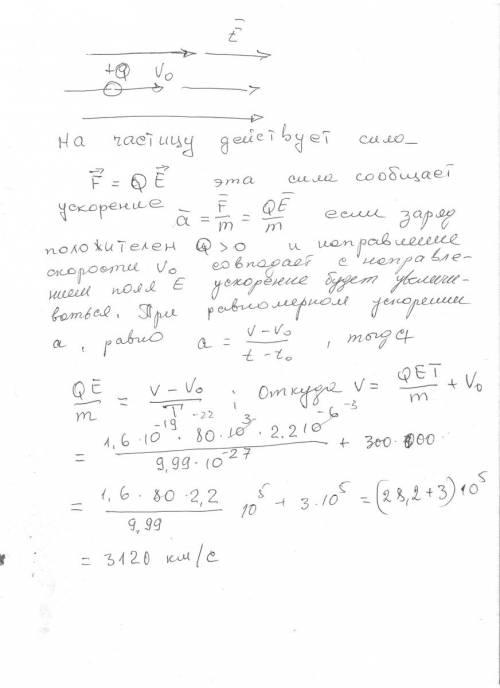 E
+Q V₀
На частицу действует сила
F = QE эта сила сообщает
ускорение a = F/m = QE/m если заряд
положителен Q>0 и направление
скорости V₀ совпадает с направле-
нием поля E ускорение будет увеличи-
ваться. При равномерном ускорении
a, равно a = (v - v₀)/(t - t₀), тогда
QE/m = (v - v₀)/T ; откуда v = QET/m + v₀
= (1,6·10⁻¹⁹·80·10³·2,2 10⁻⁶)/(9,99·10⁻²⁷) + 300·000
= (1,6·80·2,2)/9,99 10⁵ + 3·10⁵ = (28,2+3)10⁵
= 3120 км/с